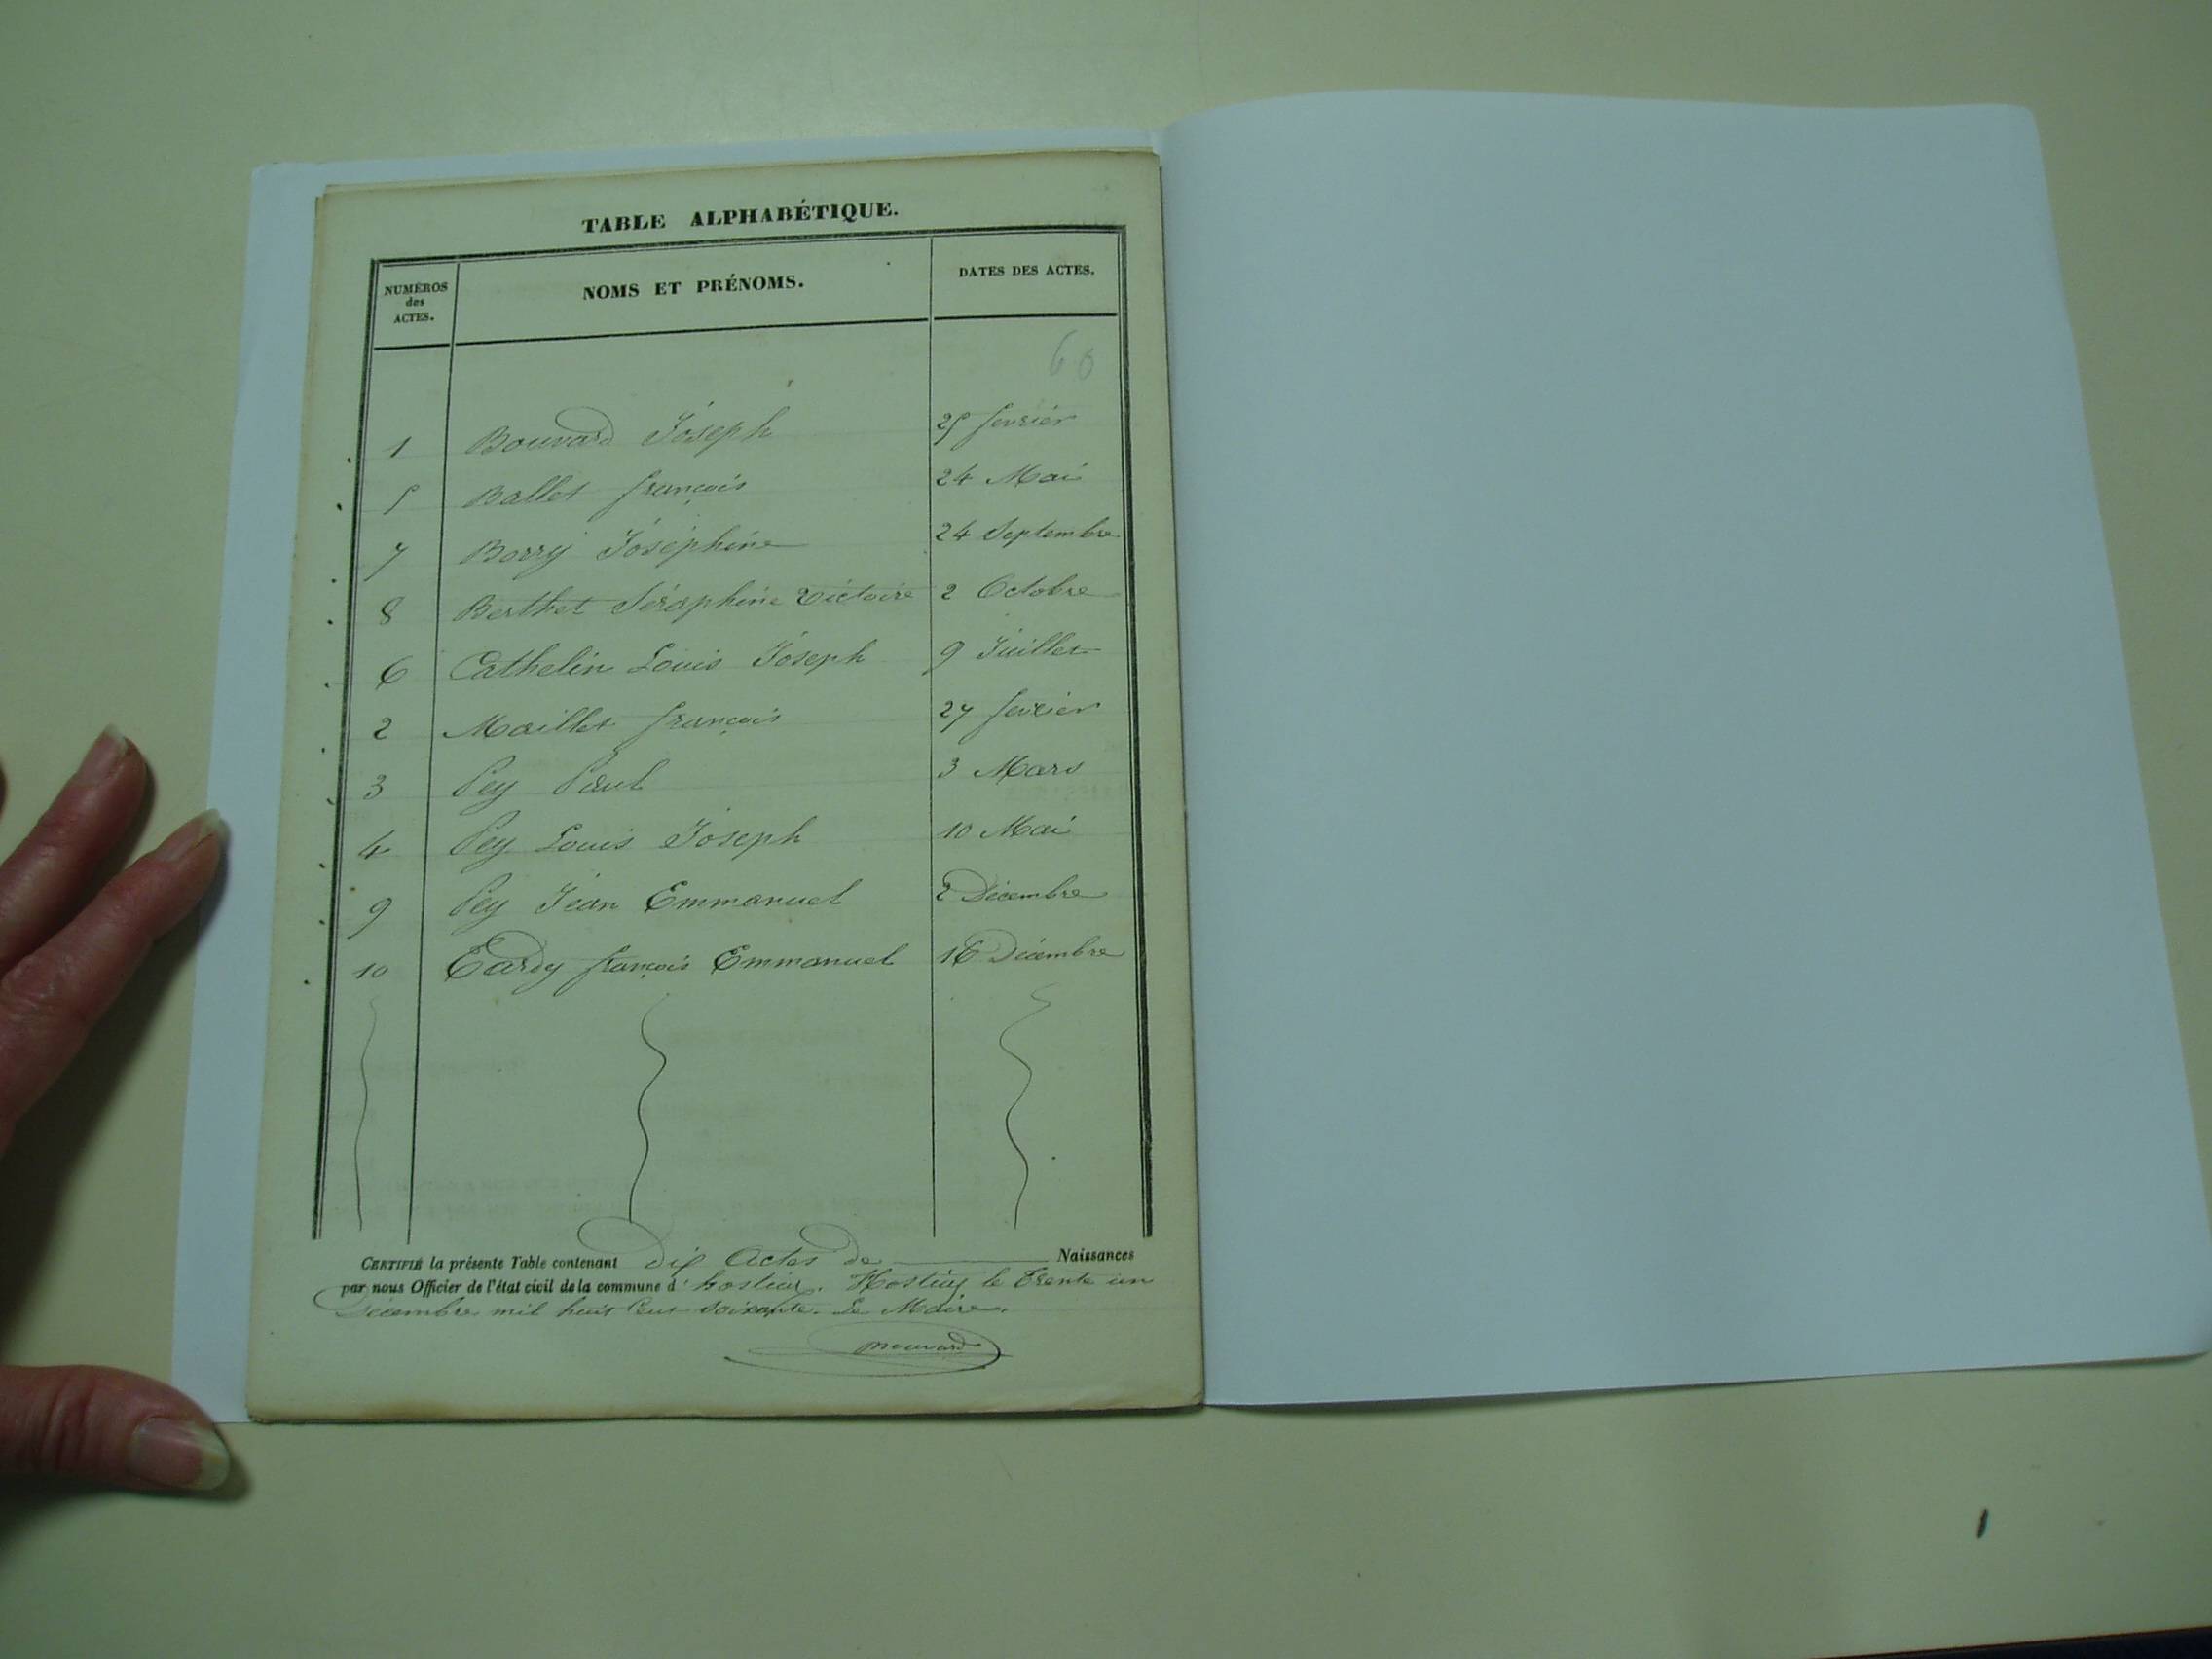 TABLE ALPHABÉTIQUE.
NUMÉROS des ACTES. NOMS ET PRÉNOMS. DATES DES ACTES.
60
1 Bouvard Joseph 25 fevrier
5 Ballet françois 24 Mai
7 Borry Joséphine 24 Septembre
8 Berthet Séraphine Victoire 2 Octobre
6 Cathelin Louis Joseph 9 Juillet
2 Maillet françois 27 fevrier
3 Pey Paul 3 Mars
4 Pey Louis Joseph 10 Mai
9 Pey Jean Emmanuel 2 Décembre
10 Tardy françois Emmanuel 16 Décembre
CERTIFIÉ la présente Table contenant Dix Actes de Naissances
par nous Officier de l'état civil de la commune d'hostias. Hostias le Trente un
Décembre mil huit Cent Soixante. Le Maire.